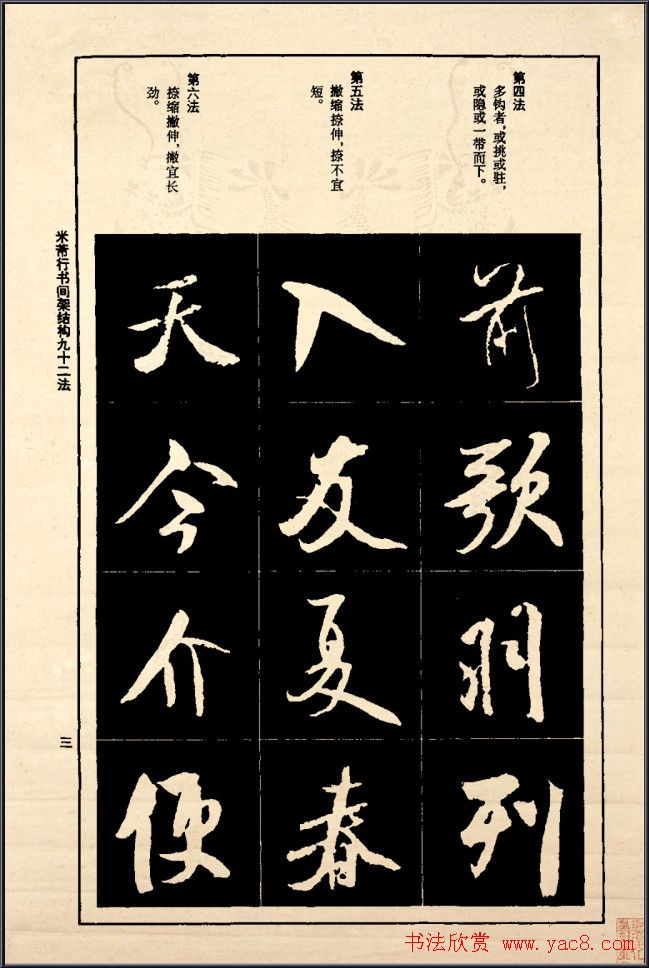 第四法
多钩者，或挑或驻，
或隐或一带而下。
第五法
撇缩捺伸，捺不宜
短。
第六法
捺缩撇伸，撇宜长
劲。
前歌羽列
入友夏春
天今介便
米芾行书间架结构九十二法
三
书法欣赏 www.yac8.com